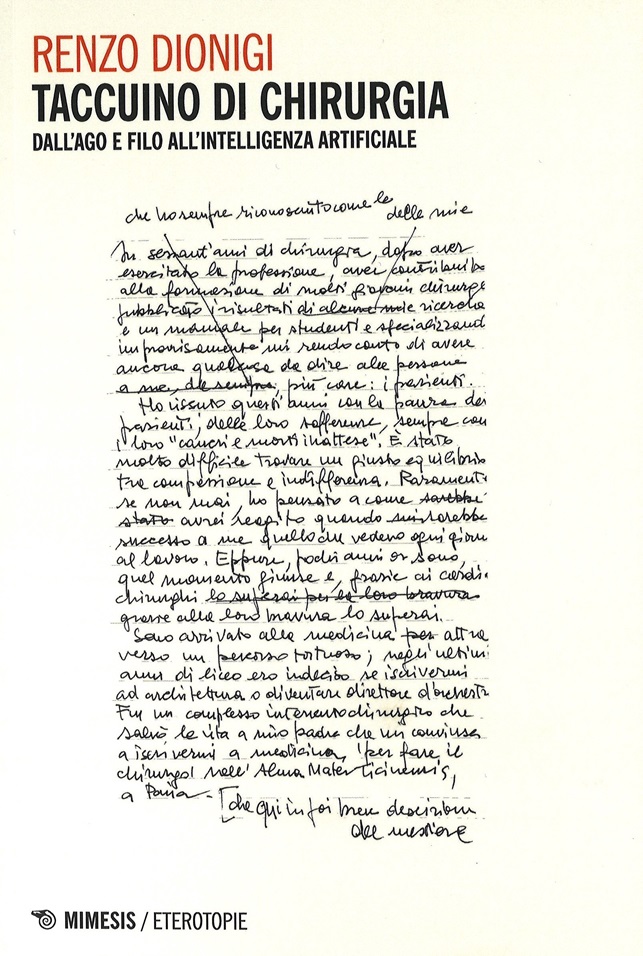 RENZO DIONIGI
TACCUINO DI CHIRURGIA
DALL'AGO E FILO ALL'INTELLIGENZA ARTIFICIALE
che ho sempre riconosciuto come le delle mie
In sessant'anni di chirurgia, dopo aver
esercitato la professione, aver contribuito
alla formazione di molti giovani chirurghi
pubblicato i risultati di alcune mie ricerche
e un manuale per studenti e specializzandi
improvvisamente mi rendo conto di avere
ancora qualcosa da dire alle persone
a me, da sempre, più care: i pazienti.
Ho vissuto questi anni con la paura dei
pazienti, delle loro sofferenze, sempre con
i loro "cancri e morti inattese". È stato
molto difficile trovare un giusto equilibrio
tra compassione e indifferenza. Raramente
se non mai, ho pensato a come sarebbe
stato avrei reagito quando mi sarebbe
successo a me quello che vedevo ogni giorno
al lavoro. Eppure, pochi anni or sono,
quel momento giunse e, grazie ai cardio
chirurghi lo superai per la loro bravura
grazie alla loro bravura lo superai.
Sono arrivato alla medicina per attra
verso un percorso tortuoso; negli ultimi
anni di liceo ero indeciso se iscrivermi
ad architettura o diventare direttore d'orchestra
Fu un complesso intervento chirurgico che
salvò la vita a mio padre che mi convinse
a iscrivermi a medicina, "per fare il
chirurgo" nell'Alma Mater Ticinensis,
a Pavia. [che qui in poi
del mestiere
MIMESIS / ETEROTOPIE